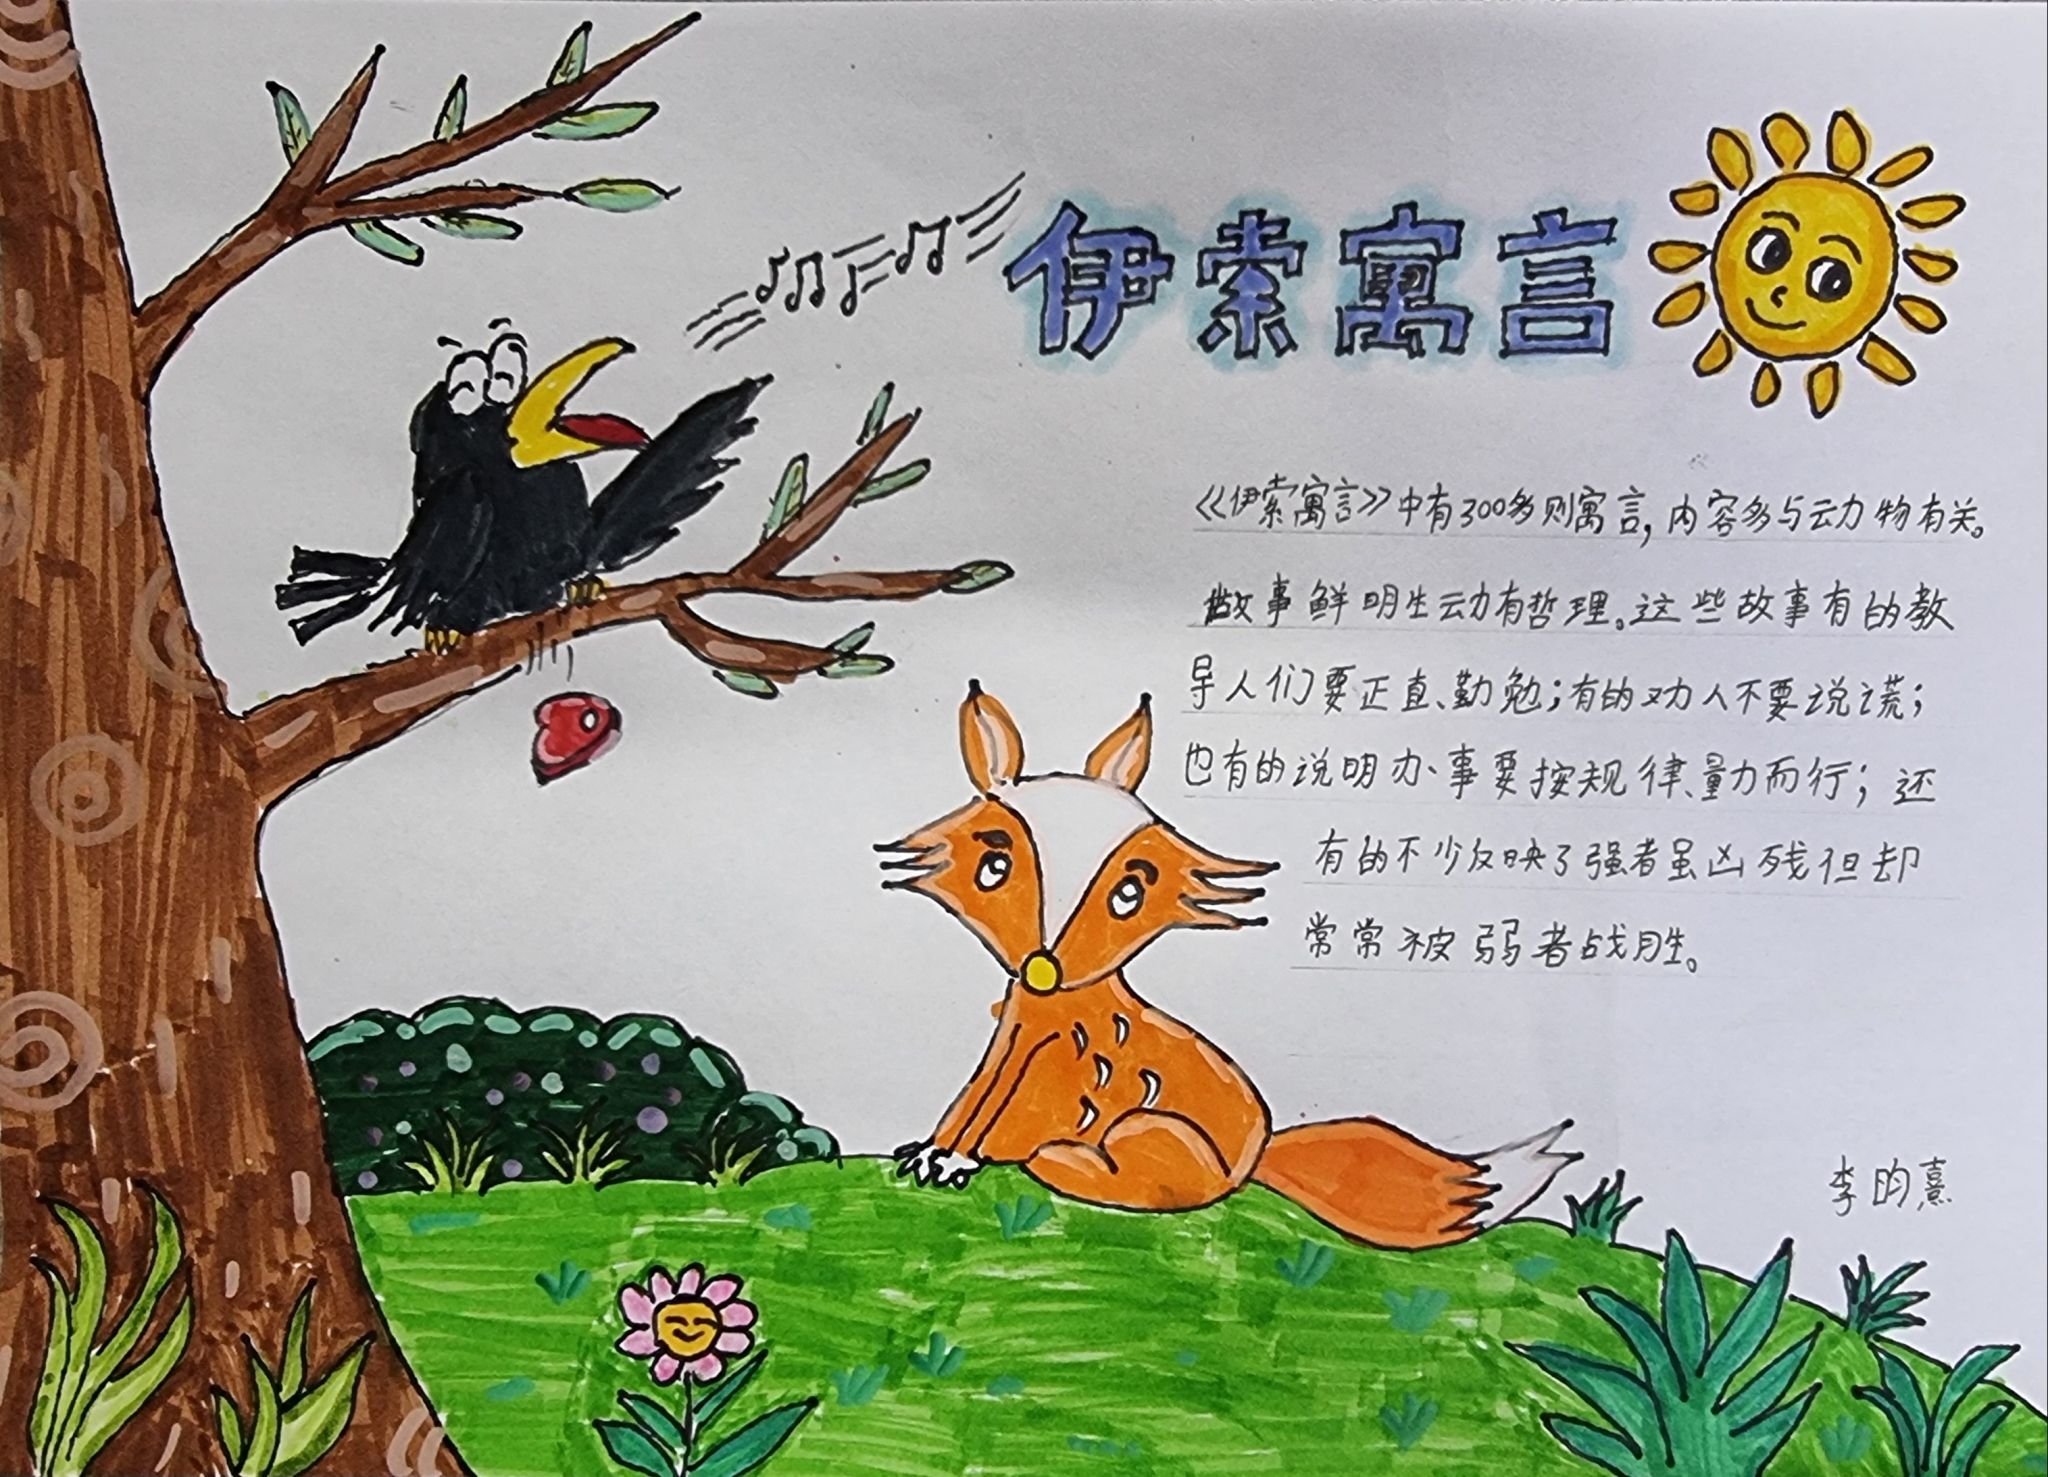 伊索寓言
《伊索寓言》中有300多则寓言，内容多与动物有关。
故事鲜明生动有哲理。这些故事有的教
导人们要正直、勤勉；有的劝人不要说谎；
也有的说明办事要按规律、量力而行；还
有的不少反映了强者虽凶残但却
常常被弱者战胜。
李昀熹